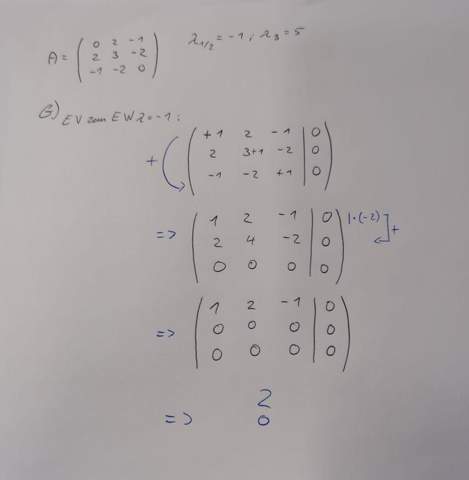 A = ( 0 2 -1 λ1/2 = -1 ; λ3 = 5
2 3 -2
-1 -2 0 )
G) EV zum EW λ = -1 :
( +1 2 -1 | 0
+ 2 3+1 -2 | 0
-1 -2 +1 | 0 )
=> ( 1 2 -1 | 0 |·(-2)
2 4 -2 | 0 +
0 0 0 | 0 )
( 1 2 -1 | 0
=> 0 0 0 | 0
0 0 0 | 0 )
2
=> 0